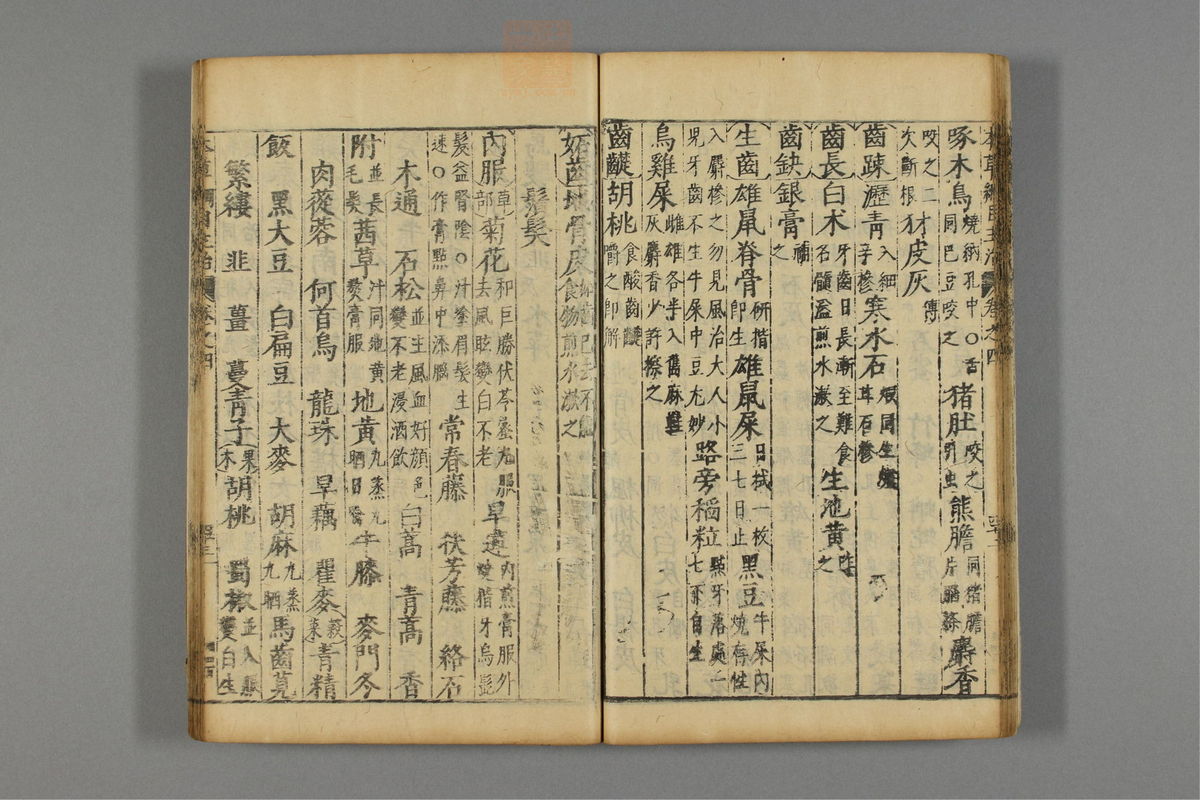 本草綱目主治 卷之四
啄木鳥燒納孔中○舌同巴豆咬之 猪肚咬之引虫 熊膽同猪膽片腦搽 麝香
咬之二次斷根 豺皮灰傅
齒疎瀝青入細辛摻 寒水石煅同生爐甘石摻
齒長白朮牙齒日長漸至難食名髓溢煎水漱之 生地黃咋之
齒缺銀膏補之
生齒雄鼠脊骨研揩即生 雄鼠屎日拭一枚三七日止 黑豆牛屎內燒存性
入麝摻之勿見風治大人小兒牙齒不生牛屎中豆尤妙 路旁稻粒點牙落處一七下自生
烏雞屎雌雄各半入舊麻鞋灰麝香少許擦之
齒䶢胡桃食酸齒䶢嚼之即解
妬齒地骨皮食物煎水漱之
鬚髮
內服草部菊花和巨勝伏苓蜜丸服去風眩變白不老 旱蓮內煎膏服外燒揩牙烏髭
髮益腎陰○汁塗眉髮生速○作膏點鼻中添腦 常春藤 扶芳藤 絡石
木通 石松並主風血好顏色變不老浸酒飲 白蒿 青蒿 香
附並長毛髮 茜草汁同地黃熬膏服 地黃九蒸九晒日噙 牛膝 麥門冬
肉蓯蓉 何首烏 龍珠 旱藕 瞿麥穀菜青精
飯 黑大豆 白扁豆 大麥 胡麻九蒸九晒 馬齒莧
繁縷 韭 薑 蔓菁子果木胡桃 蜀椒並入服變白生
本草綱目主治 卷之四